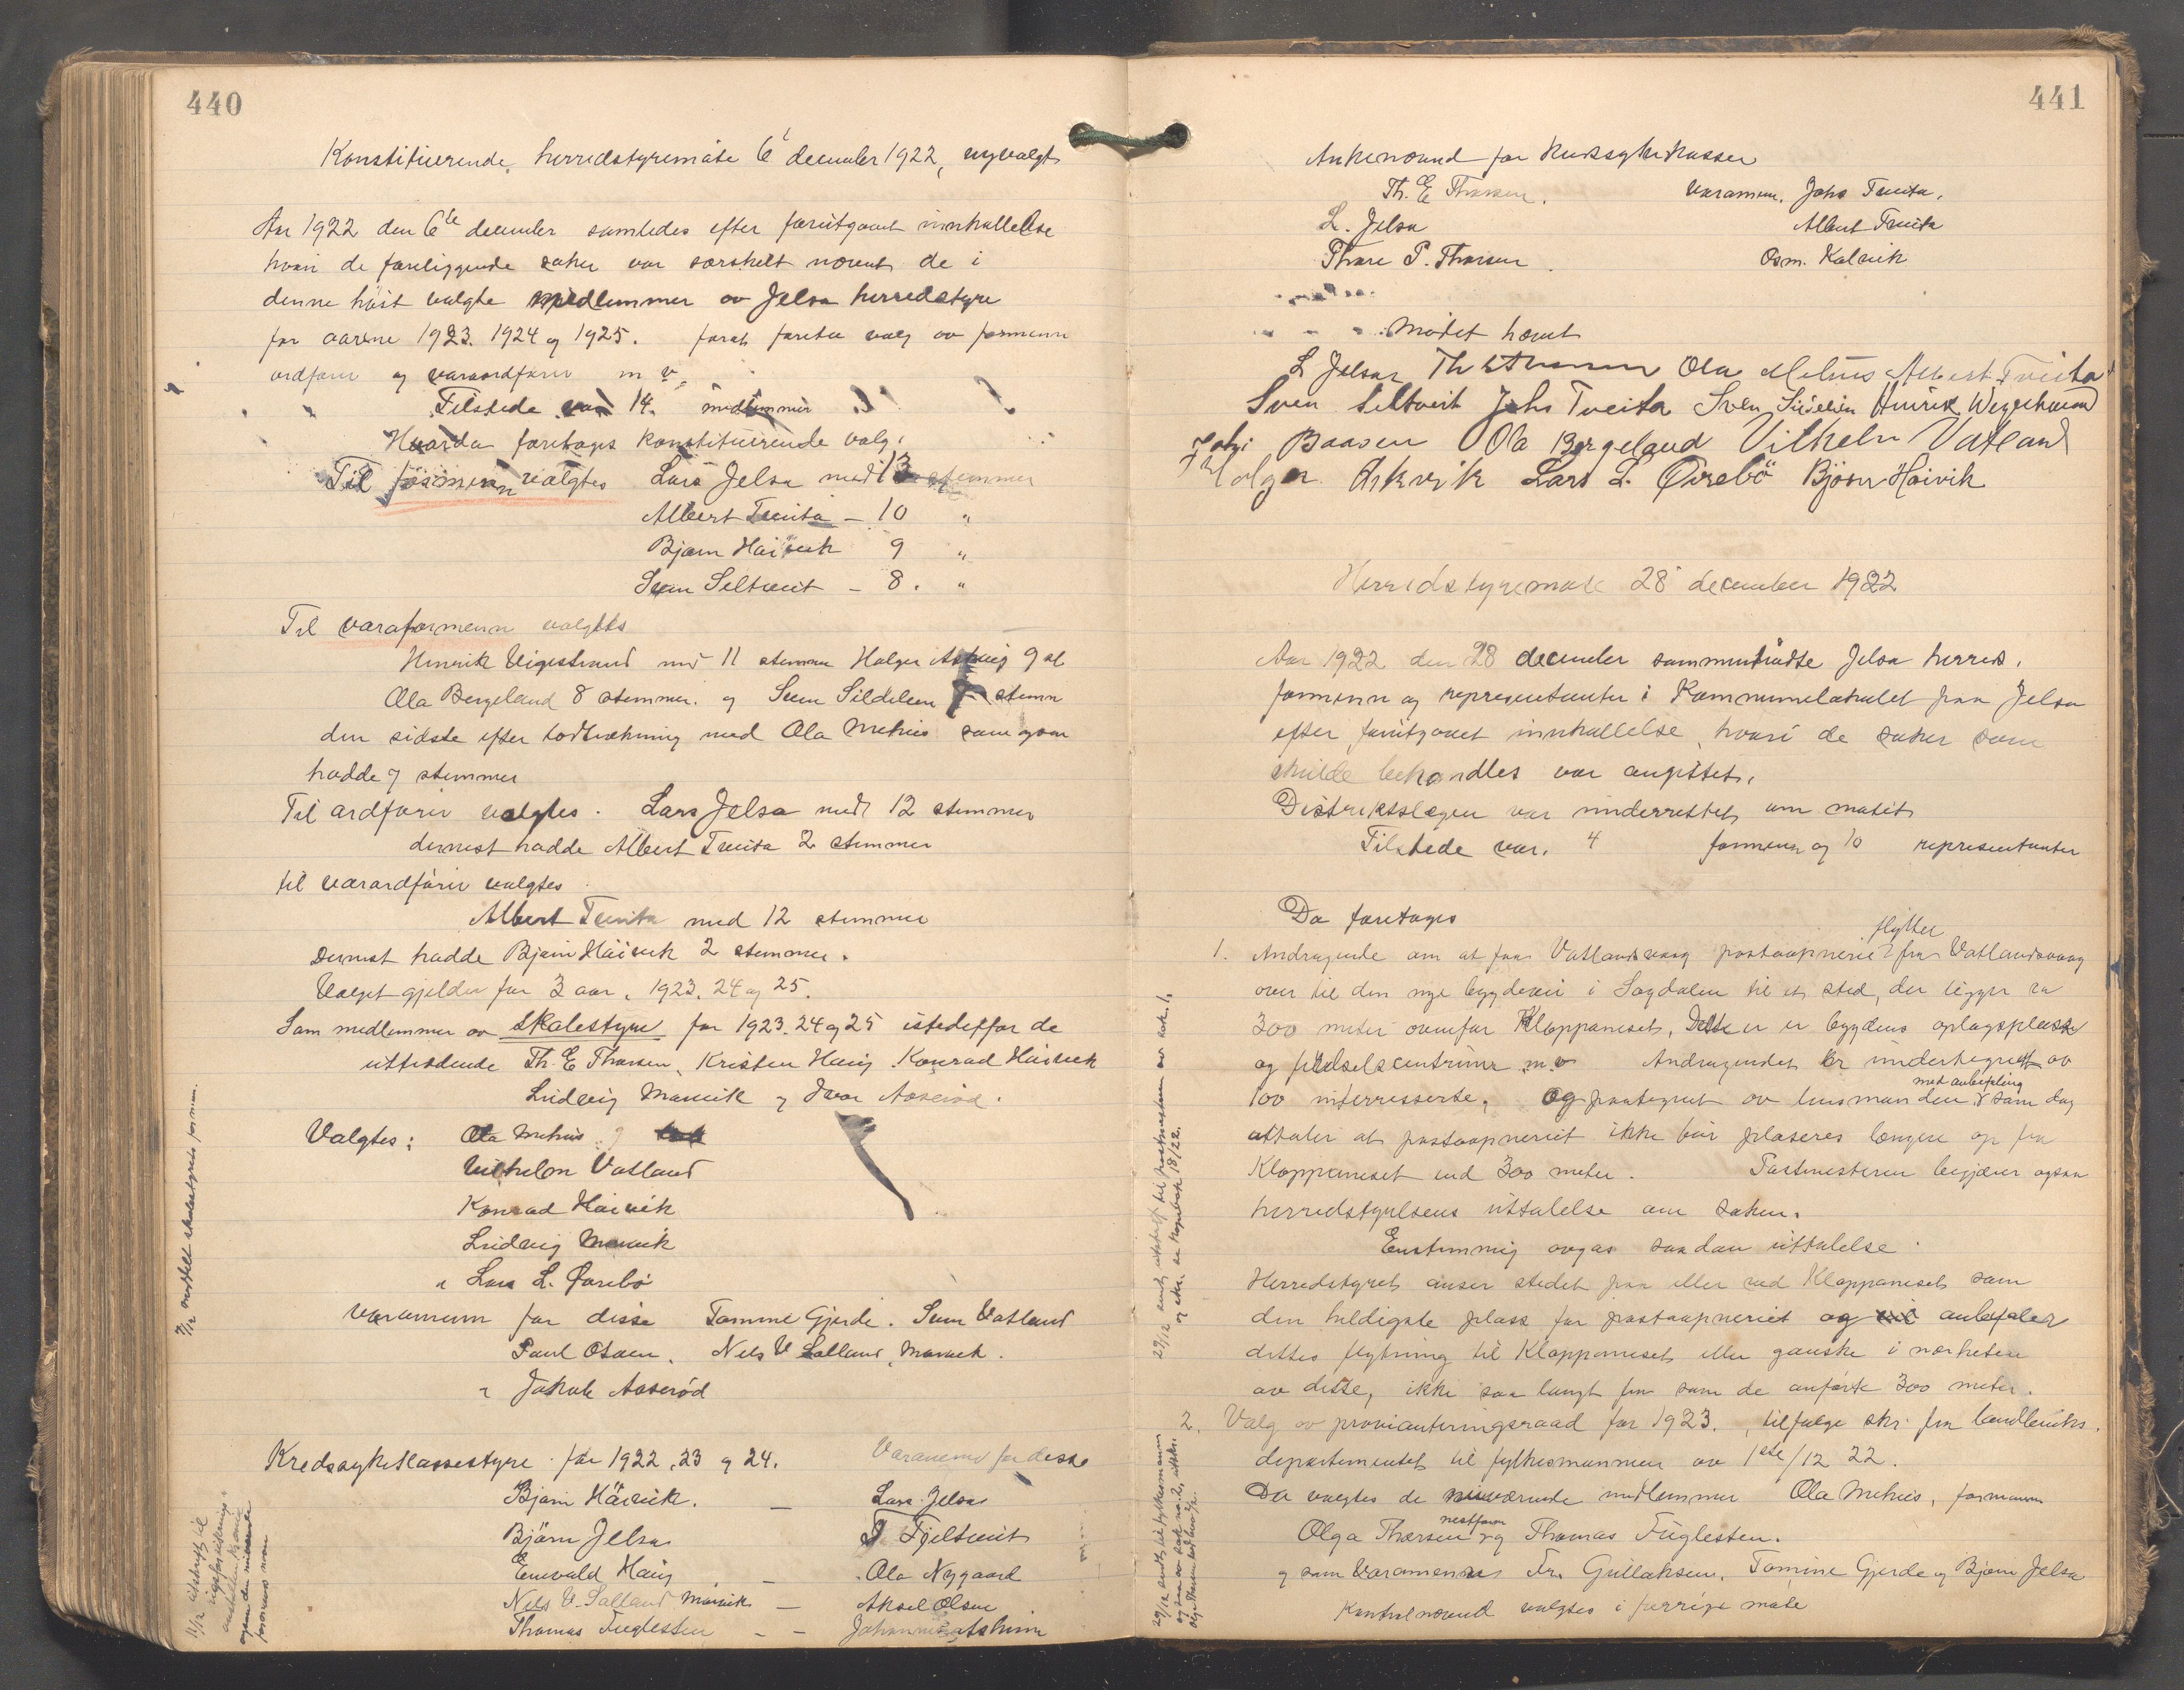 440
Konstituerende herredstyremøte 6 december 1922, nyvalgt
Aar 1922 den 6te december samledes efter forutgaaet innkallelse
hvori de foreliggende saker var særskilt nævnt de i
denne høst valgte medlemmer av Jelsa herredstyre
for aarene 1923. 1924 og 1925. forat foreta valg av formenn
ordfører og varaordfører m v.
Tilstede var 14. medlemmer
Hvorda foretages konstituerende valg.
Til formenn valgtes Lars Jelsa med 13 stemmer
Albert Tveita - 10 "
Bjørn Håivik 9 "
Sven Seltveit - 8. "
Til varaformenn valgtes
Henrik Vigestrand med 11 stemmer Holger Askvig 9 st
Ola Bergeland 8 stemmer. og Sven Sildelien 7 stemm
den sidste efter lodtrekning med Ola Mehus som ogsaa
hadde 7 stemmer
Til ordfører valgtes. Lars Jelsa med 12 stemmer
dernest hadde Albert Tveita 2 stemmer
til varaordfører valgtes
Albert Tveita med 12 stemmer
Dernest hadde Bjørn Håivik 2 stemmer.
Valget gjelder for 3 aar, 1923, 24 og 25.
Som medlemmer av skolestyre for 1923. 24 og 25 istedetfor de
uttredende Th. E Thorsen, Kristen Haug Konrad Håivik
Ludvig Marvik og Ivar Aaserød.
Valgtes: Ola Mehus
Vilhelm Vatland
Konrad Håivik
Ludvig Marvik
" Lars L. Øvrebø
Varamenn for disse Tomine Gjerde. Sven Vatland
Paul Olsen, Nels V Salland, Marvik.
" Jakob Aaserød
Kredssykekassestyre for 1922, 23 og 24. Varamenn for disse
Bjørn Håivik. - Lars Jelsa
Björn Jelsa T Fjeltveit
Enevald Haug - Ola Nygaard
Nels V. Salland Marvik - Aksel Olsen
Thomas Fuglestein - -
441
Ankenævnd for Kredssykekassen
Th. E Thorsen. Varamenn. Johs Tveita.
L. Jelsa Albert Tveita
Thore P. Thorsen Osm. Kalvik
Møtet hævet
L Jelsa Th E Thorsen Ola Mehus Albert Tveita
Sven Seltveit Johs Tveita Sven Sildelien Henrik Vigestrand
Johs Baasen Ola Bergeland Vilhelm Vatland
Holger Askvik Lars L. Øvrebö Bjørn Håivik
Herredstyremøte 28 december 1922
Aar 1922 den 28 december sammentraadte Jelsa herreds.
formenn og representanter i Kommunelokalet paa Jelsa
efter forutgaaet innkallelse, hvori de saker som
skulde behandles var angittet.
Distriktslægen var underrettet om møtet
Tilstede var. 4 formenn og 10 representanter
Da foretages
flyttet
1. Andragende om at faa Vatlandsvaag postaapneri fra Vatlandsvaag
over til den nye bygdevei i Sagdalen til et sted, der ligger ca
300 meter ovenfor Kloppaneset, Dette er er bygdens oplagsplass
og ferdselscentrum m.v Andragendet er undertegnet av
med anbefaling
100 interesserte, og paategnet av lensmanden som dog
uttaler at postaapneriet ikke bør plaseres længere op fra
Kloppaneset end 300 meter. Postmesteren begjærer ogsaa
herredstyrelsens uttalelse om saken.
Enstemmig avgas saadan uttalelse
Herredstyret anser stedet paa eller ved Kloppaneset som
den heldigste plass for postaapneriet og anbefaler
dettes flytning til Kloppaneset eller ganske i nærheten
av dette, ikke saa langt fra som de anførte 300 meter.
2. Valg av provianteringsraad for 1923., tilfølge skr. fra landbruks.
departementet til fylkesmannen av 1ste/12 22.
Da valgtes de nuværende medlemmer Ola Mehus, formann
nestform
Olga Thorsen og Thomas Fuglesten.
og som Varamenn Fr. Gullaksen, Tomine Gjerde og Bjørn Jelsa
Kontrolnævnd valgtes i forrige møte